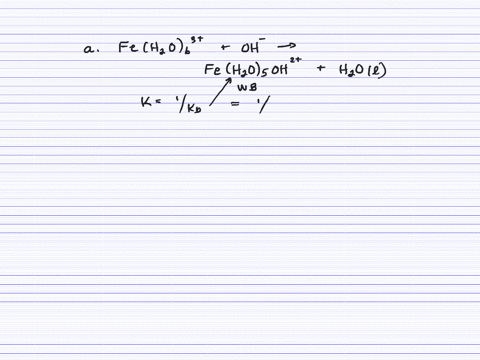 a. Fe(H₂O)₆³⁺ + OH⁻ →
Fe(H₂O)₅OH²⁺ + H₂O(l)
WB
K = 1/Kb = 1/